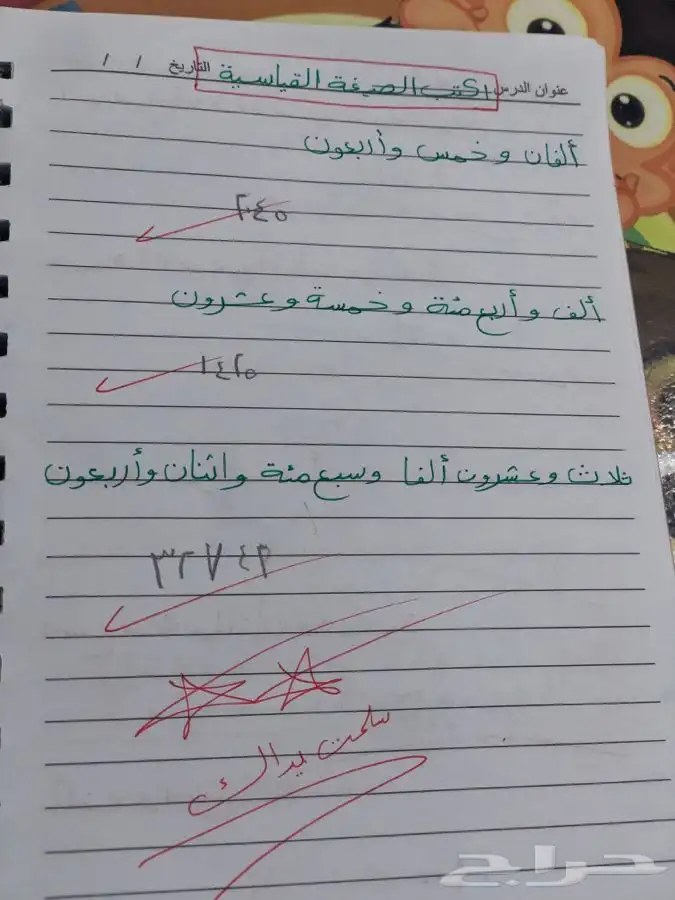 عنوان الدرس اكتب الصيغة القياسية التاريخ / /
ألفان و خمس وأربعون
٢٠٤٥
ألف و أربع مئة و خمسة و عشرون
١٤٢٥
ثلاث و عشرون ألفا وسبع مئة واثنان وأربعون
٣٢٧٤٢
سلمت يداك
حراج